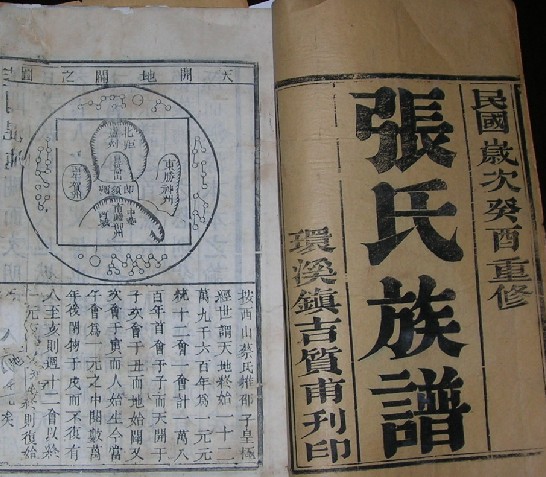 民國歲次癸酉重修
張氏族譜
環溪鎮吉質甫刊印
天開地闢之圖
東勝神州
按西山蔡氏推邵子皇極
經世謂天地終始一十二
萬九千六百年爲一元元
統十二會一會計一萬八
百年首會于子而天開于
子次會于丑而地始闢又
次會于寅而人始生今當
午會爲一元之中閱數萬
年後閉物于戌而不復有
人至亥則週十二會以終
一元終則復始
矣